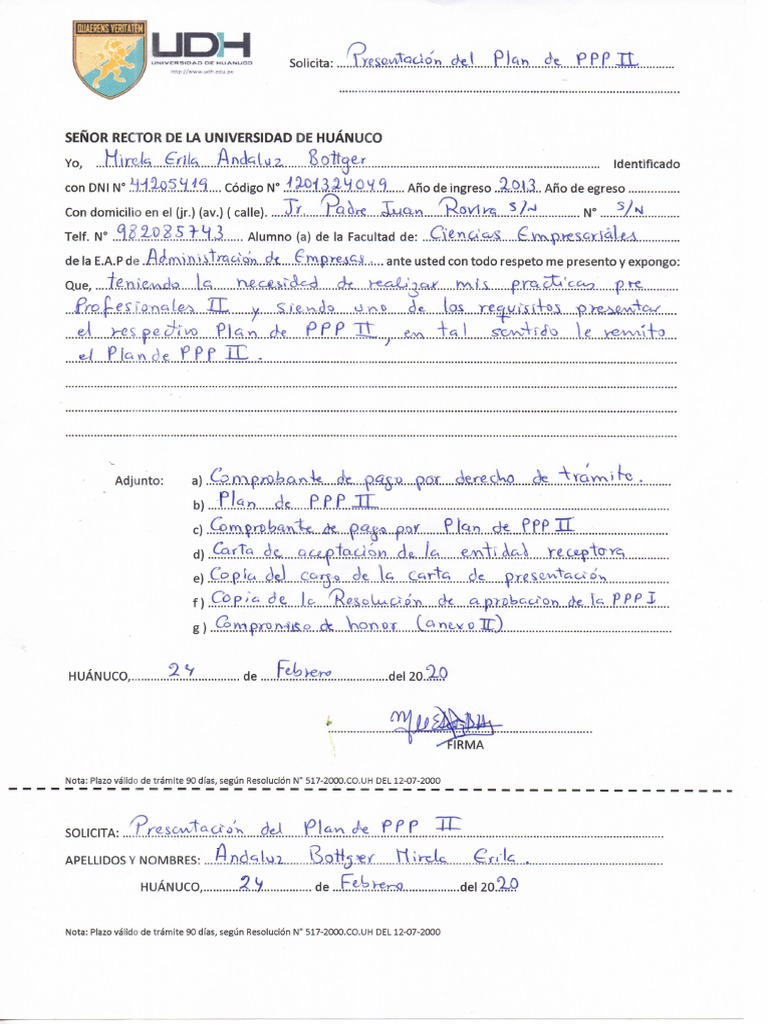 QUAERENS VERITATEM
UDH
UNIVERSIDAD DE HUANUCO
http://www.udh.edu.pe
Solicita: Presentación del Plan de PPP II
SEÑOR RECTOR DE LA UNIVERSIDAD DE HUÁNUCO
Yo, Mirela Erila Andaluz Bottger Identificado
con DNI N° 41205419 Código N° 1201324049 Año de ingreso 2013 Año de egreso
Con domicilio en el (jr.) (av.) ( calle). Jr. Padre Juan Rovira S/N N° S/N
Telf. N° 982085743 Alumno (a) de la Facultad de: Ciencias Empresariales
de la E.A.P de Administración de Empresas ante usted con todo respeto me presento y expongo:
Que, teniendo la necesidad de realizar mis practicas pre
Profesionales II y siendo uno de los requisitos presentar
el respectivo Plan de PPP II, en tal sentido le remito
el Plan de PPP II.
Adjunto: a) Comprobante de pago por derecho de trámite.
b) Plan de PPP II
c) Comprobante de pago por Plan de PPP II
d) Carta de aceptación de la entidad receptora
e) Copia del cargo de la carta de presentación
f ) Copia de la Resolución de aprobacion de la PPP I
g ) Compromiso de honor (anexo II)
HUÁNUCO, 24 de Febrero del 20.20
FIRMA
Nota: Plazo válido de trámite 90 días, según Resolución N° 517-2000.CO.UH DEL 12-07-2000
SOLICITA: Presentación del Plan de PPP II
APELLIDOS Y NOMBRES: Andaluz Bottger Mirela Erila.
HUÁNUCO, 24 de Febrero del 20.20
Nota: Plazo válido de trámite 90 días, según Resolución N° 517-2000.CO.UH DEL 12-07-2000